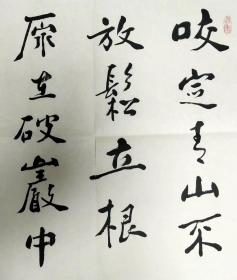 咬定青山不
放鬆立根
原在破巖中